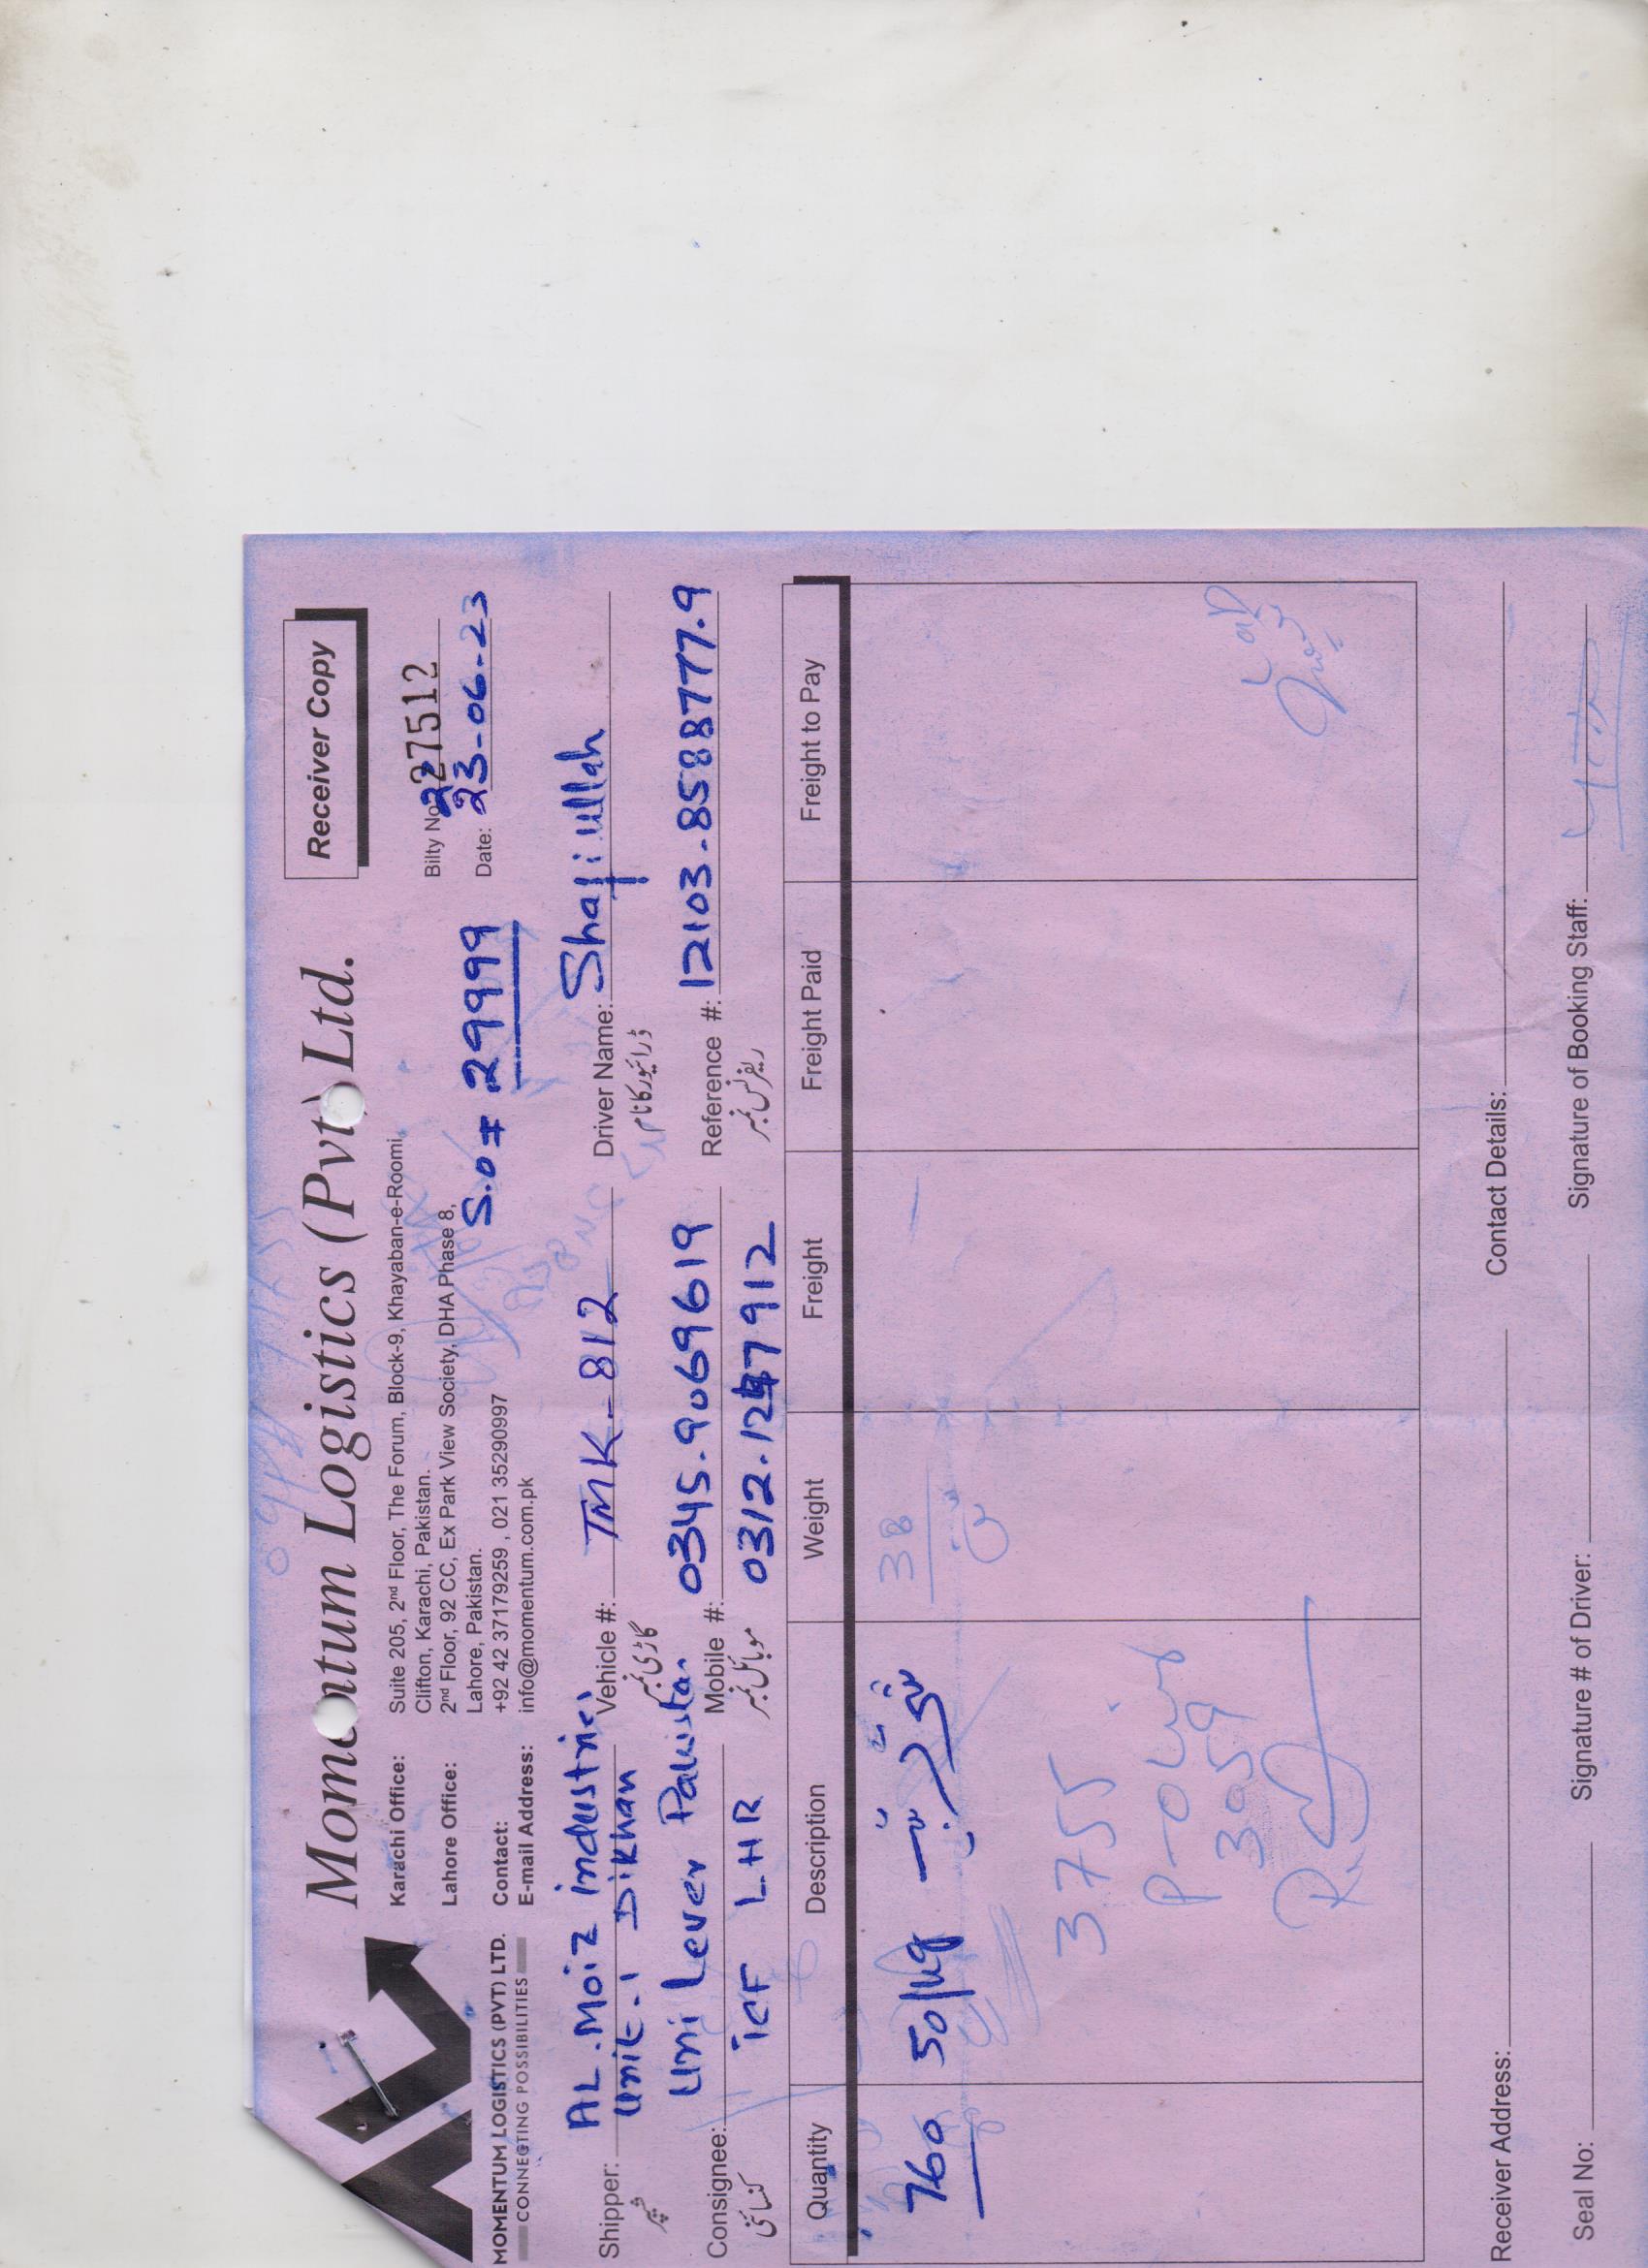 Receiver Copy
Momentum Logistics (Pvt) Ltd.
MOMENTUM LOGISTICS (PVT) LTD.
CONNECTING POSSIBILITIES
Karachi Office: Suite 205, 2nd Floor, The Forum, Block-9, Khayaban-e-Roomi,
Clifton, Karachi, Pakistan.
Lahore Office: 2nd Floor, 92 CC, Ex Park View Society, DHA Phase 8,
Lahore, Pakistan.
Contact: +92 42 37179259 , 021 35290997
E-mail Address: info@momentum.com.pk
Bilty No: 27512
Date: 23-06-23
S.o # 29999
Shipper: AL.Moiz industries
Unit-1 DiKhan
شپر
Vehicle #: TMK-812
گاڑی نمبر
Driver Name: Shafiullah
ڈرائیور کا نام
Consignee: Uni Lever Pakistan
icF LHR
کنسائنی
Mobile #: 0345.9069619
0312.1247912
موبائل نمبر
Reference #: 12103-8588777.9
ریفرنس نمبر
Quantity Description Weight Freight Freight Paid Freight to Pay
760 50/kg
38
3755
3059
Receiver Address: Contact Details:
Seal No: Signature # of Driver: Signature of Booking Staff: